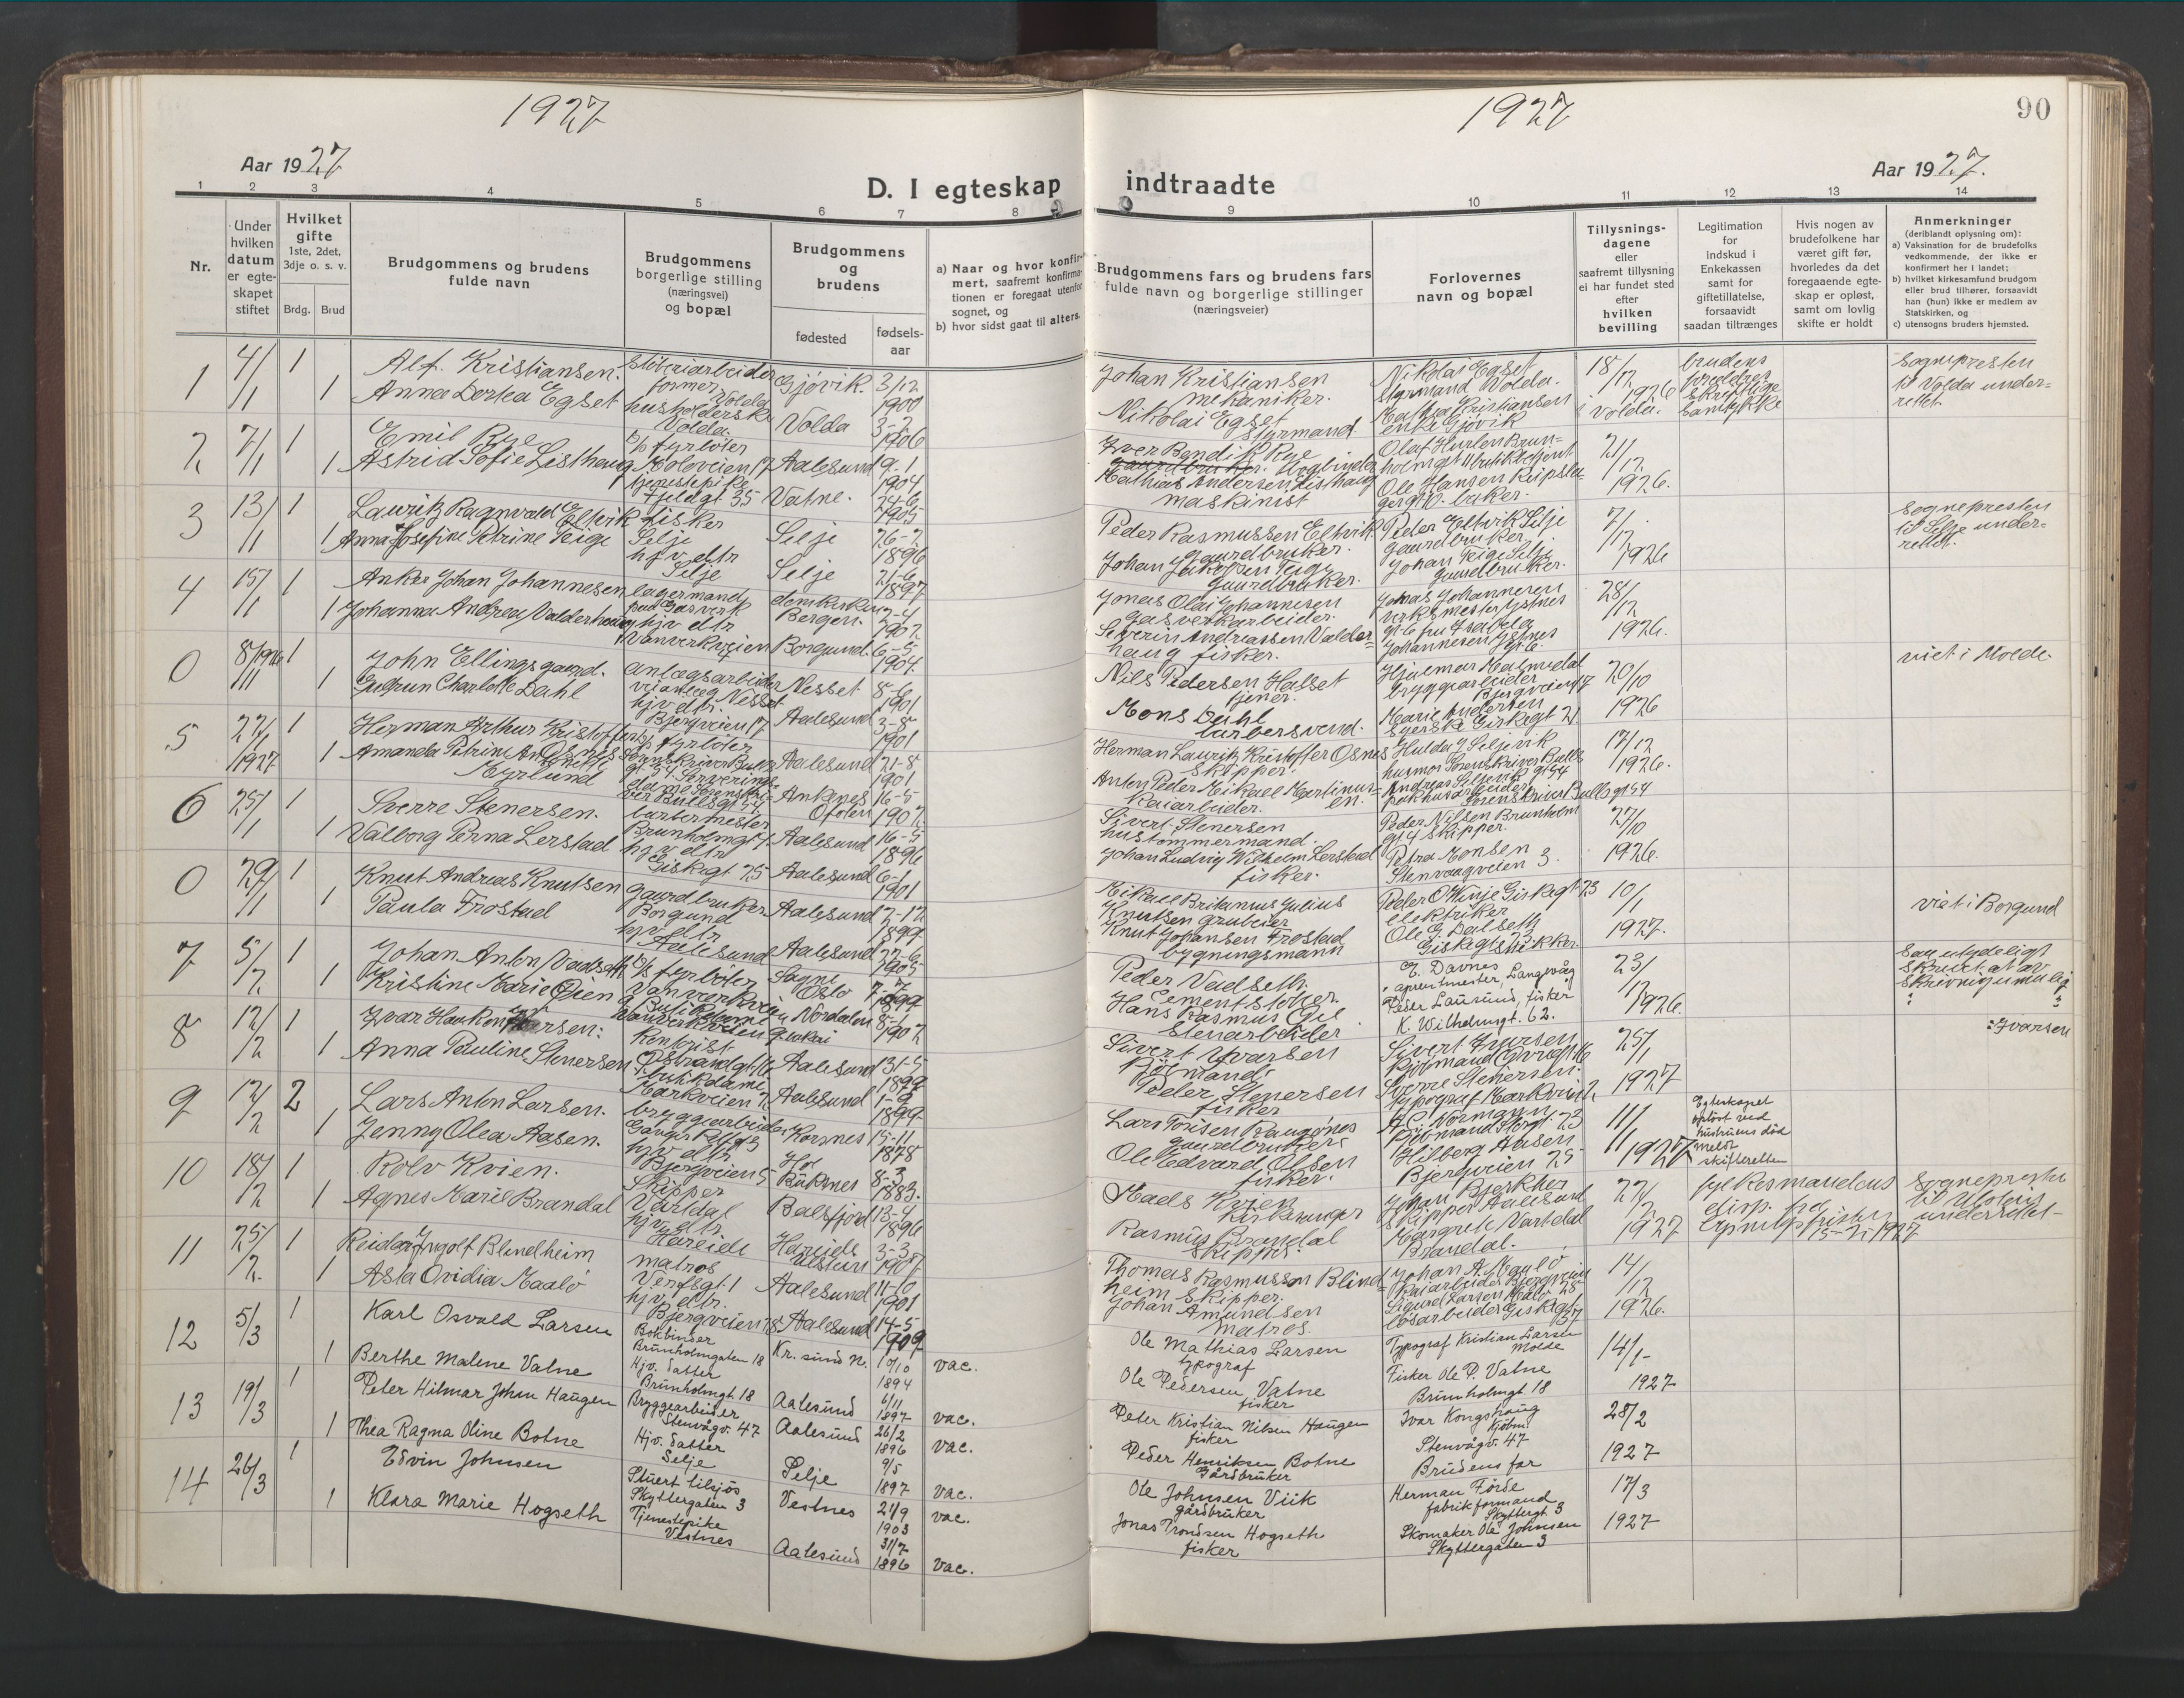 1927
Aar 1927
D. I egteskap
1 2 3 4 5 6 7 8
Nr.
Under hvilken datum er egte- skapet stiftet
Hvilket gifte 1ste, 2det, 3dje o. s. v.
Brdg. Brud
Brudgommens og brudens fulde navn
Brudgommens borgerlige stilling (næringsvei) og bopæl
Brudgommens og brudens
fødested
fødsels- aar
a) Naar og hvor konfir- mert, saafremt konfirma- tionen er foregaat utenfor sognet, og
b) hvor sidst gaat til alters.
1 4/1 1 Alf. Kristiansen. Gjøvik. 3/12 1900
1 Anna Dortea Egset Volda. Volda 1906
2 7/1 1 Emil Rye fyrbøter Moloveien 17 Aalesund 9-1 1904
1 Astrid Sofie Listhaug tjenestepike Fjeldgt 35 Vatne. 24-6 1905
3 13/1 1 Lauritz Ragnvald Eltvik fisker Selje Selje 26-2 1896
1 Anna Josefine Petrine Teige hjv. dtr Selje Selje 21-6 1897
4 15/1 1 Anker Johan Johannesen lagermand paa Gasverk Bergen. 1902
1 Johanna Andrea Valderhaug hjv dtr Vanverkveien Borgund. 6-5 1904
0 8/1926 11 1 John Ellingsgaard. anlægsarbeider veianlæg Nesset Nesset 8-6 1901
1 Gudrun Charlotte Dahl hjv dtr. Bjergveien 17 Aalesund 3-8 1901
5 22/1 1927 1 Herman Arthur Kristoffer Osnes fyrbøter Aalesund 21-8 1901
1 Amanda Petrine Antonette Myrlund Ankenes Ofoten 16-5 1902
6 25/1 1 Sverre Stenersen. barbermester Brunholmgt 1. Aalesund 16-5 1896
1 Valborg Perna Lerstad hjv dtr Giskegt 25 Aalesund 6-1 1901
0 29/1 1 Knut Andreas Knutsen gaardbruker Borgund Aalesund 2-12 1899
1 Paula Frostad hjv dtr Aalesund Aalesund 27-6 1905
7 5/2 1 Johan Anton Vadseth fyrbøter Vanverkveien Oslo
1 Kristine Marie Øien Vanverkveien Nordalen 1902
8 12/2 1 Ivar Haukon Aalesund 13-5 1899
1 Anna Pauline Stenersen butikdame Markveien 2 Aalesund 1-9 1899
9 12/2 2 Lars Anton Larsen. bryggearbeider Korsnes 15-11 1878
1 Jenny Olea Aasen. hjv dtr Bjergveien 5 Buksnes 8-3 1883.
10 18/2 1 Rolv Kvien. Skipper Vartdal Balsfjord 13-4 1896
1 Agnes Marie Brandal hjv dtr Hareide Hareide 3-3 1907
11 25/2. 1 Reidar Ingolf Blindheim matros Verftsgt. 1 Aalesund 1901
1 Asta Ovidia Maalø hjv. dtr. Bjergveien 28 Aalesund 14-5 1909
12 5/3 1 Karl Osvald Larsen Bokbinder Brunholmgaten 18 Kr. sund N. 10/10 1894 vac.
1 Berthe Malene Vatne Hjv. datter Brunholmgt. 18 Aalesund 6/11 1897 vac.
13 19/3 1 Peter Hilmar Johan Haugen Bryggearbeider Stenvågv. 47 Aalesund 26/2 1896 vac.
1 Thea Ragna Oline Botne Hjv. datter Selje Selje 9/5 1897 vac.
14 26/3 1 Edvin Johnsen Stuert tilsjøs Skyttergaten 3 Vestnes 21/9 1903 vac.
1 Klara Marie Hogseth Tjenestepike Vestnes Aalesund 31/7 1896 vac.
1927
90
indtraadte
Aar 1927.
9 10 11 12 13 14
Brudgommens fars og brudens fars fulde navn og borgerlige stillinger (næringsveier)
Forlovernes navn og bopæl
Tillysnings- dagene eller saafremt tillysning ei har fundet sted efter hvilken bevilling
Legitimation for indskud i Enkekassen samt for giftetillatelse, forsaavidt saadan tiltrænges
Hvis nogen av brudefolkene har været gift før, hvorledes da det foregaaende egte- skap er opløst, samt om lovlig skifte er holdt
Anmerkninger (deriblandt oplysning om):
a) Vaksination for de brudefolks vedkommende, der ikke er konfirmert her i landet;
b) hvilket kirkesamfund brudgom eller brud tilhører, forsaavidt han (hun) ikke er medlem av Statskirken, og
c) utensogns bruders hjemsted.
Johan Kristiansen mekaniker. Nikolai Egset Styrmand Volda. 18/12 1926 i Volda. brudens forældres skriftlige samtykke Sognepresten til Volda under- rettet.
Nikolai Egset Styrmand Mathea Kristiansen enke Gjøvik
Iver Bendik Rye Olaf Hurlen Brun- holmgt 11 butikbetjent 21/12 1926.
Mathias Andersen Listhaug maskinist Ole Hansen baker.
Peder Rasmussen Eltvik gaardbruker. Peder Eltvik Selje gaardbruker. 7/12 1926 Sognepresten til Selje under- rettet.
Johan Jakobsen Teige Gaardbruker. Johan Teige Selje gaardbruker.
Jonas Olai Johannesen gasverkarbeider. Jonas Johannesen 28/12 1926.
Severin Andreassen Valder- haug fisker.
Nils Pedersen Halset tjener. Hjalmar Malmedal bryggearbeider Bjergveien 17 20/10 1926 viet i Molde.
Mons Dahl barbersvend. Marie Andersen Giskegt 21
Herman Lauritz Kristoffer Osnes Skipper. Hulda J Siljevik 17/12 1926.
Anton Peder Mikael Martinus- en. Kaiarbeider. Andreas Siljevik pakhusarbeider Sorenskriver Bullsgt 54
Sivert Stenersen hustømmermand. Peder Nilsen Brunholm gt 4 skipper. 27/10 1926.
Johan Ludvig Wilhelm Lerstad fisker. Petra Monsen Stenvaagveien 3.
Mikael Britanius Julius Knutsen Peder O Winje Giskegt 23 elektriker 10/1 1927. viet i Borgund
Knut Johansen Frostad bygningsmann Ole G. Dalseth
Peder Vadseth. Cementstøber. E. Davnes Langevåg 23/12 1926. Saa utydeligt skrevet at av-
Hans Rasmus Stenarbeider Peder Lausund, fisker K. Wilhelmsgt. 62.
Sivert Ivarsen Sivert Ivarsen 25/1 1927 : Ivarsen
Peder Stenersen fisker Sverre Stenersen. typograf Markvei 2
gaardbruker. A. C. Normann 11/1 1927 Egteskapet opløst ved hustruens død meldt skifteretten
Ole Edvard Olsen fisker. Hilberg Aasen Bjergveien 25
Mads Kvien Kirkesanger Johan Bjerkher Skipper Aalesund 22/2 1927 fylkesmandens disp. fra 15-2-1927 Sognepresten til underrettet-
Rasmus Brandal Skipper. Margrete Vartdal Brandal.
Thomas Rasmussen Blind- heim Skipper. Johan A. Maalø 14/12 1926.
Johan Amundsen Matros. Sigurd Larsen løsarbeider Giskegt
Ole Mathias Larsen typograf Typograf Kristian Larsen Molde 14/1- 1927
Ole Pedersen Vatne fisker Fisker Ole P. Vatne Brunholmgt 18
Peter Kristian Nilsen Haugen fisker Ivar Kongshaug Kjøbm. Stenvågv. 47 28/2 1927
Peder Henriksen Botne Gårdbruker Brudens far
Ole Johnsen Viik gårdbruker Herman Förde fabrikformand Skyttergt 3 17/3 1927
Jonas Trondsen Hogseth fisker Skomaker Ole Johnsen Skyttergaten 3